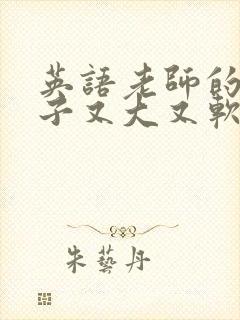 英語老師的
子又大又軟
朱藝丹